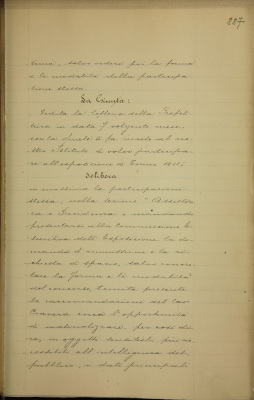 227
salvo vedere per la forma
e le modalità della partecipa
zione stessa
La Giunta:
Veduta la lettera della Prefet
tura in data 7 volgente mese,
con la quale si fa
Istituto di voler partecipa
re all'esposizione di Torino 1911;
delibera
in massima la partecipazione
stessa, nella sezione "Assisten
za e Previdenza" e mandando
presentare alla Commissione E
secutiva dell'Esposizione la do
manda di ammissione e la ri
chiesta di spazio, salvo
la forma e le modalità
del concorso, tenuta presente
la raccomandazione del Cav
circa l'opportunità
di materializzare, per così di
re, in oggetti tendenti, più ac
cessibili all'intelligenza del
pubblico, i dati principali